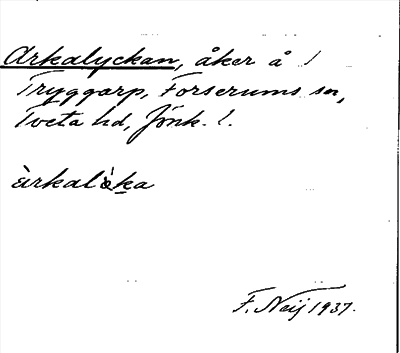 Arkalyckan, åker å 1
Tryggarp, Forserums sn,
Tveta hd, Jönk. l.
àrkalòka
F. Neij 1937.